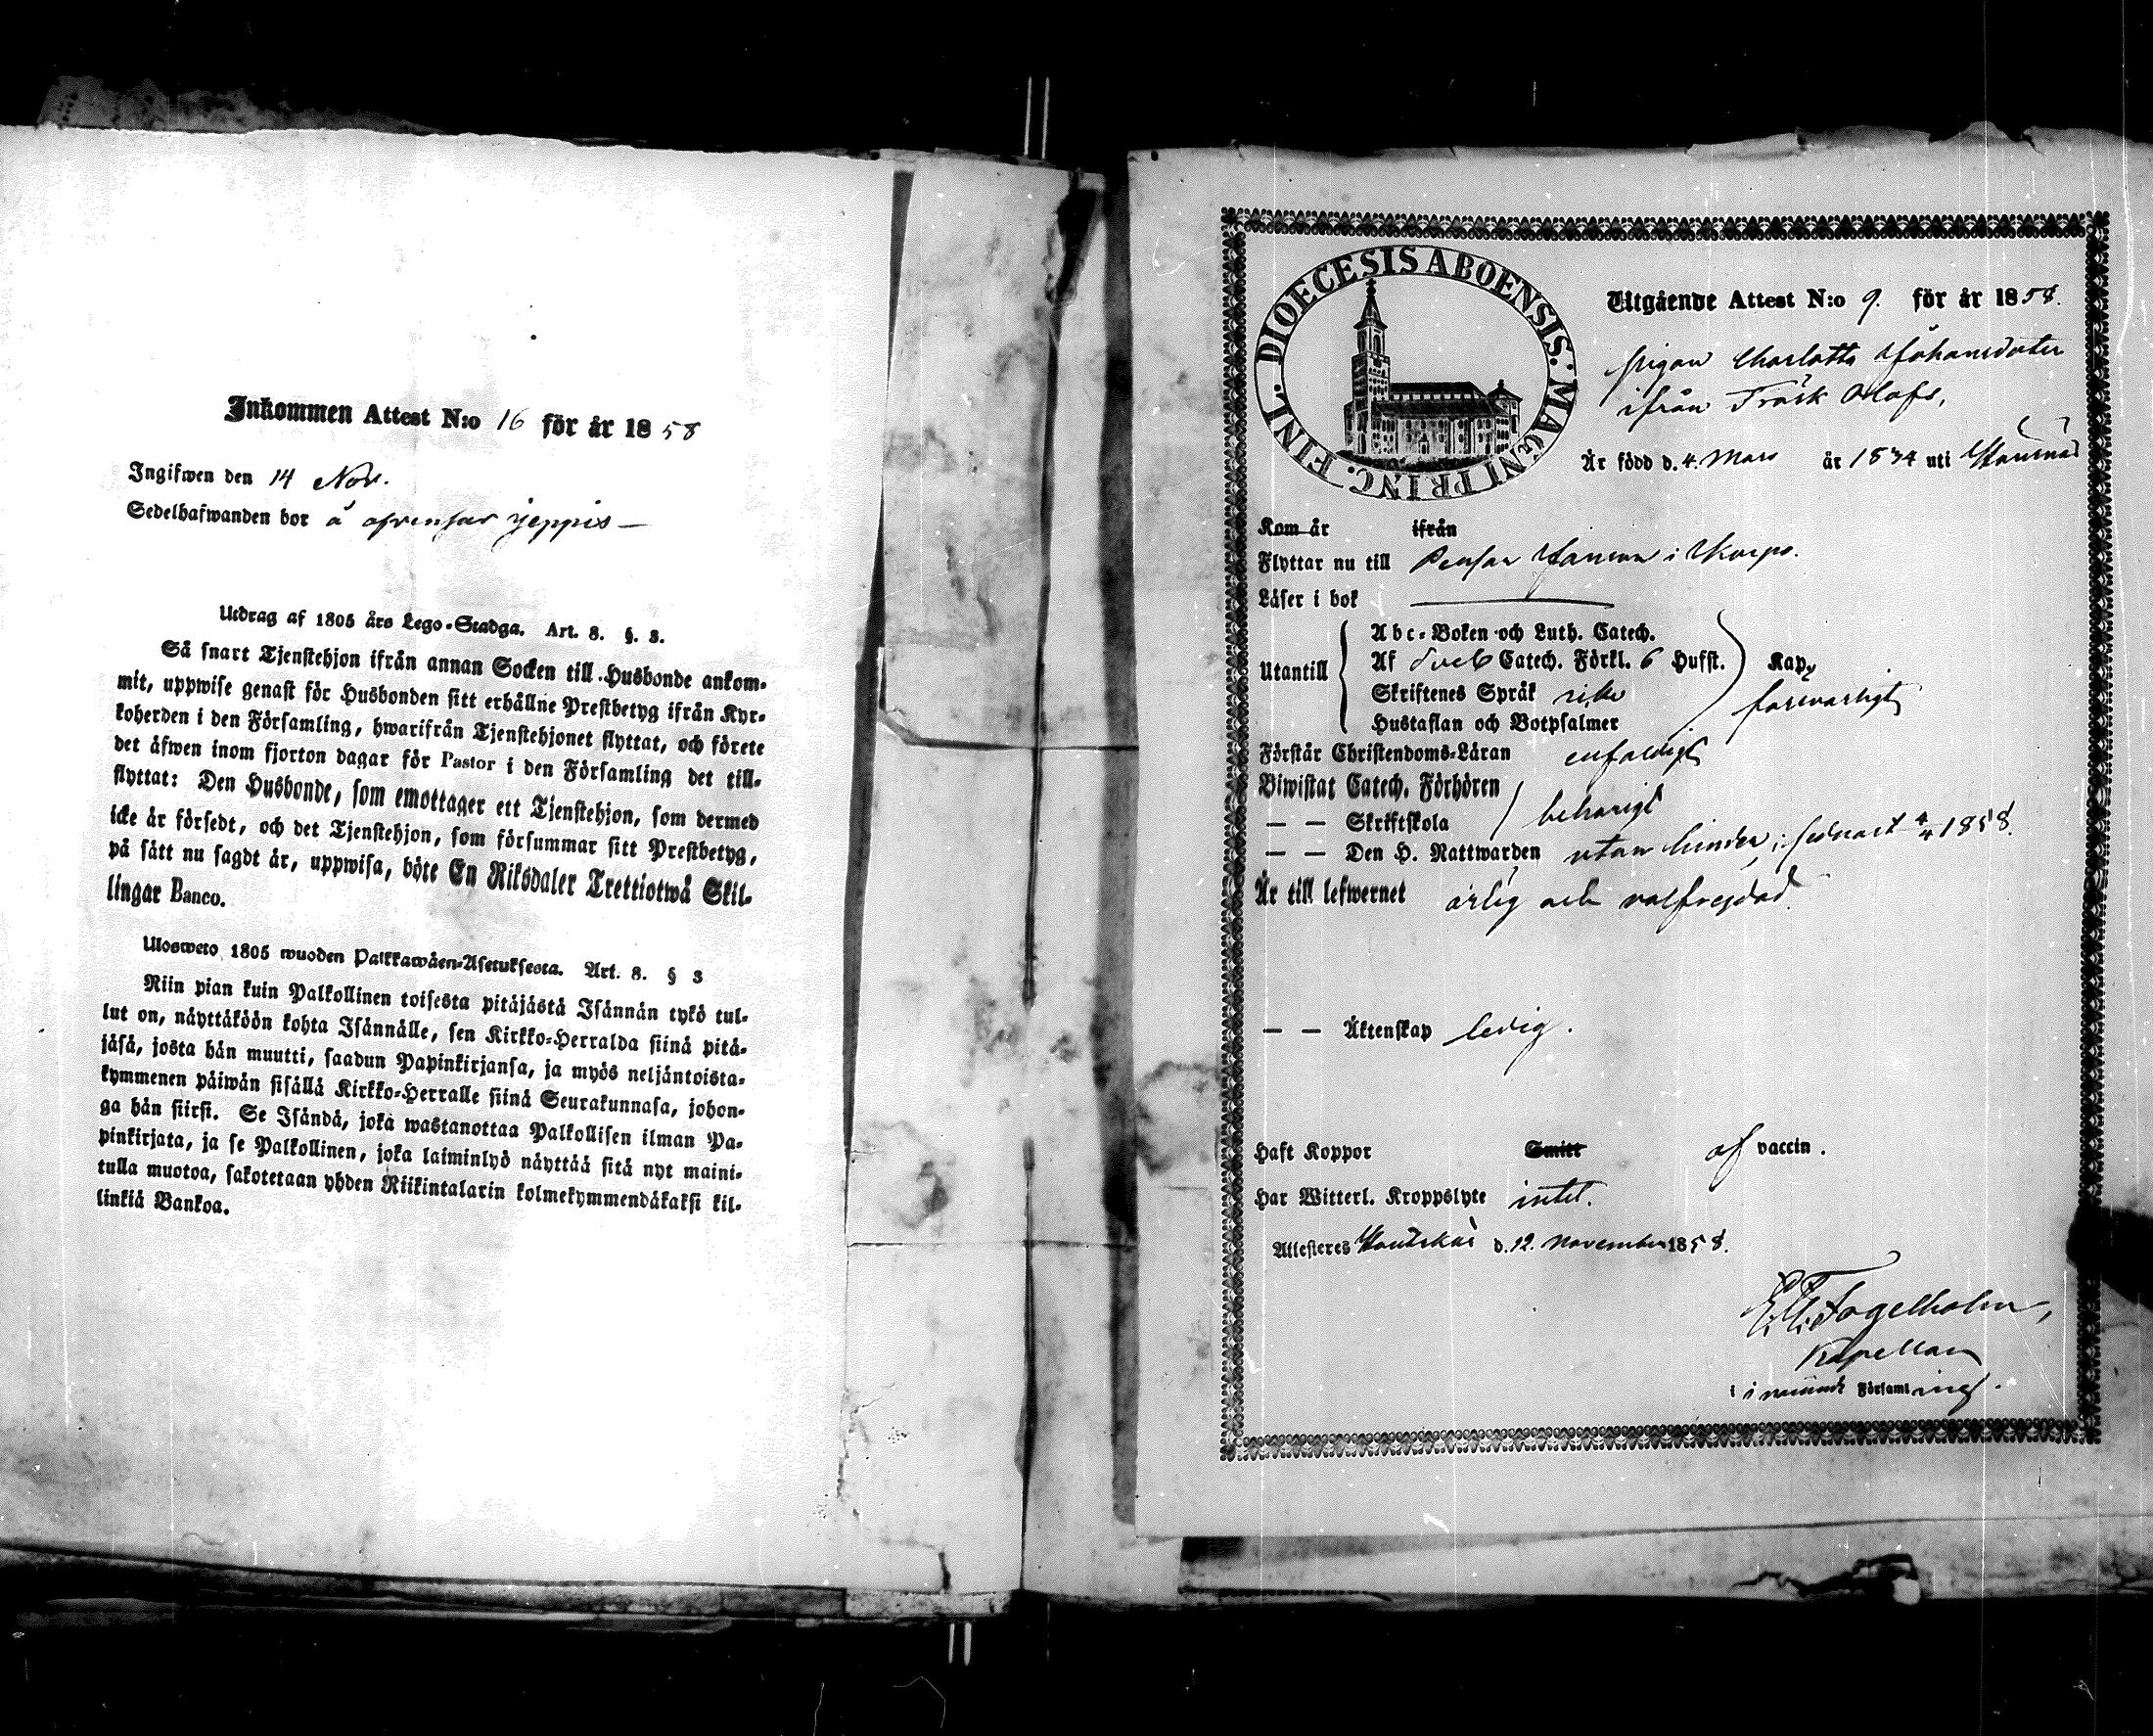 Inkommen Attest N:o 16 för år 1858
Ingifwen den 14 Nov.
Sedelhafwanden bor å ofvensor Jeppis —
Utdrag af 1805 års Lego-Stadga. Art. 8. §. 3.
Så snart Tjenstehjon ifrån annan Socken till Husbonde ankom-
mit, uppwise genast för Husbonden sitt erhållne Prestbetyg ifrån Kyr-
koherden i den Församling, hwarifrån Tjenstehjonet flyttat, och förete
det äfwen inom fjorton dagar för Pastor i den Församling det till-
flyttat: Den Husbonde, som emottager ett Tjenstehjon, som dermed
icke är försedt, och det Tjenstehjon, som försummar sitt Prestbetyg,
på sätt nu sagdt är, uppwisa, böte En Riksdaler Trettiotwå Skil-
lingar Banco.
Ulosweto 1805 wuoden Palkkawäen-Asetuksesta. Art. 8. § 3
Niin pian kuin Palkollinen toisesta pitäjästä Isännän tykö tul-
lut on, näyttäköön kohta Isännälle, sen Kirkko-Herralda siinä pitä-
jäsä, josta hän muutti, saadun Papinkirjansa, ja myös neljäntoista-
kymmenen päiwän sisällä Kirkko-Herralle siinä Seurakunnasa, johon-
ga hän siirsi. Se Isändä, joka wastanottaa Palkollisen ilman Pa-
pinkirjata, ja se Palkollinen, joka laiminlyö näyttää sitä nyt maini-
tulla muotoa, sakotetaan yhden Riikintalarin kolmekymmendäkaksi kil-
linkiä Bankoa.
DIOECESIS ABOENSIS. MAGNI PRINC. FINL.
Utgående Attest N:o 9. för år 1858.
pigan Charlotta Johansdoter
ifrån Träsk Olofs,
Är född d. 4. Mars år 1834 uti
Kom år ifrån
Flyttar nu till Pensar i Korpo.
Läser i bok
Utantill
Abc-Boken och Luth. Catech.
Af Sveb Catech. Förkl. 6 Hufst. Kap
Skriftenes Språk
Hustaflan och Botpsalmer
försvarligt
Förstår Christendoms-Läran enfaldigt
Biwistat Catech. Förhören
— — Skriftskola
behörigt
— — Den H. Nattwarden utan hinder, senast 4/4 1858.
Är till lefwernet ärlig och välfrejdad.
— — Äktenskap ledig.
Haft Koppor Smitt af vaccin.
Har Witterl. Kroppslyte intet.
Attesteres Houtskär d. 12. November 1858.
Fogelholm,
Kapellan
i nämnde Församling.